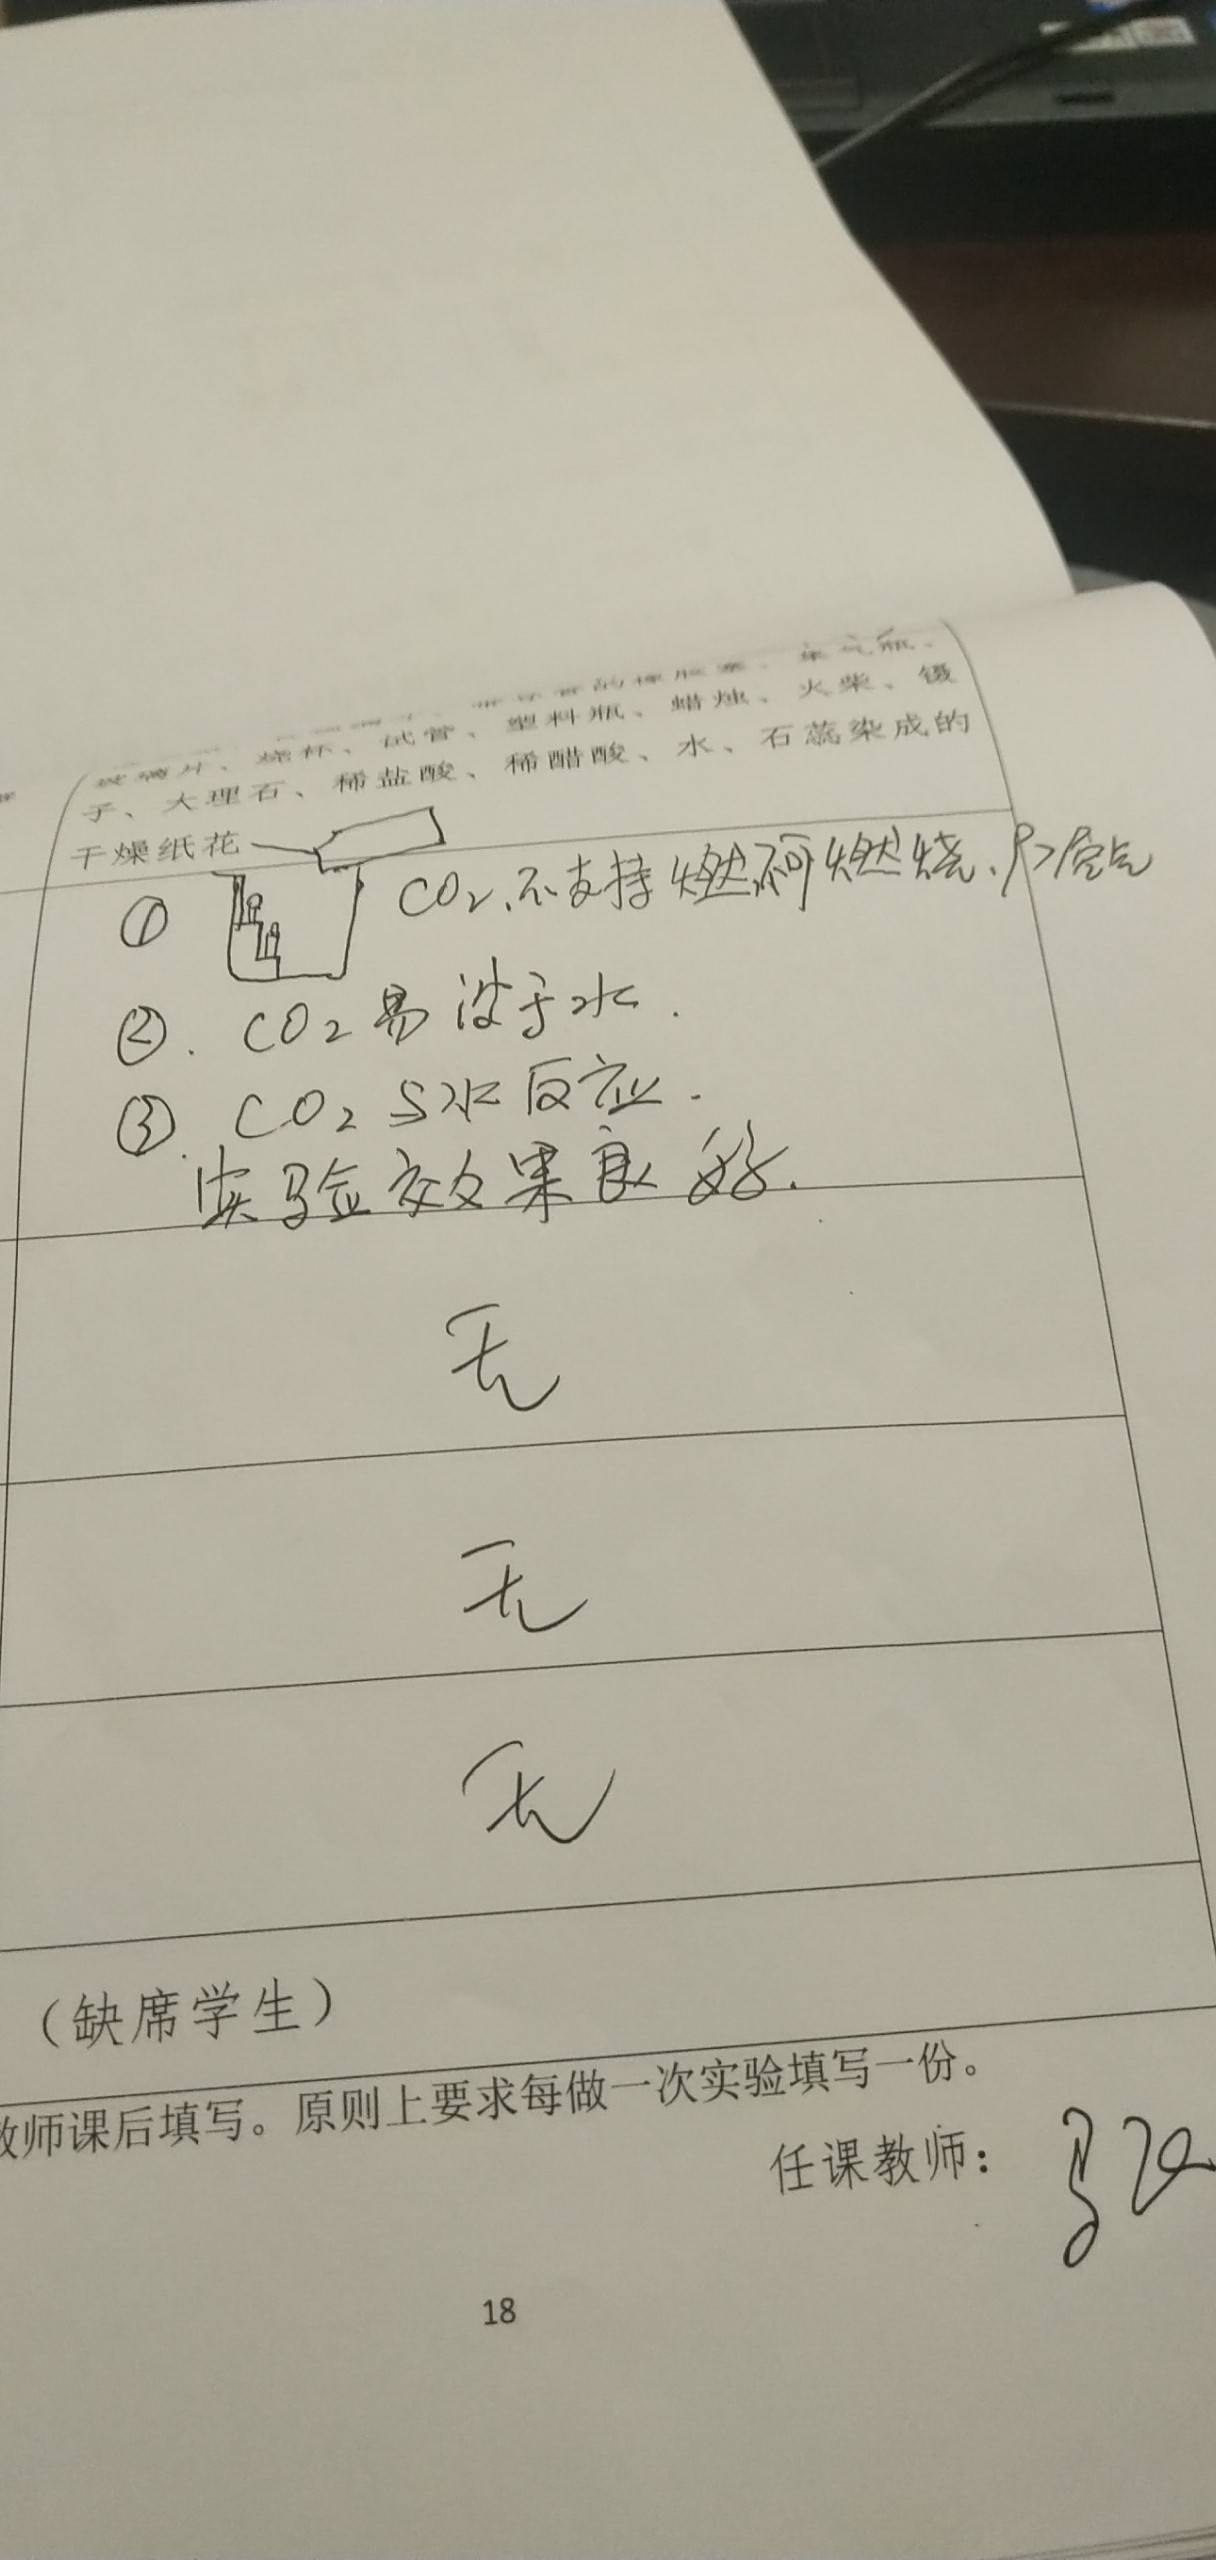 玻璃片、烧杯、试管、塑料瓶、蜡烛、火柴、镊
子、大理石、稀盐酸、稀醋酸、水、石蕊染成的
干燥纸花
① CO₂、不支持燃烧、ρ>空气
②. CO₂易溶于水.
③. CO₂与水反应.
实验效果良好.
无
无
无
（缺席学生）
教师课后填写。原则上要求每做一次实验填写一份。
任课教师：
18